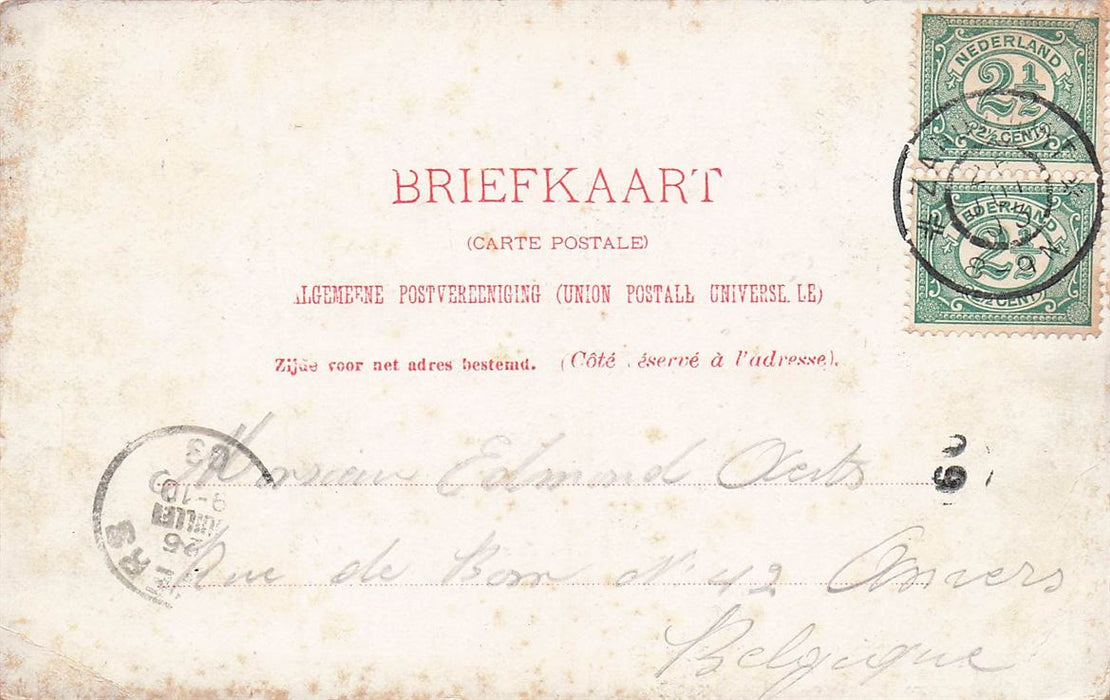 NEDERLAND
2½
(2½ CENT)
NEDERLAND
2½
(2½ CENT)
8-9
BRIEFKAART
(CARTE POSTALE)
ALGEMEENE POSTVEREENIGING (UNION POSTALE UNIVERSELLE)
Zijde voor het adres bestemd. (Côté réservé à l'adresse).
Monsieur Edmond Aerts
Rue de Bom No 42 Anvers
Belgique
03
9-10
JUILLET
26